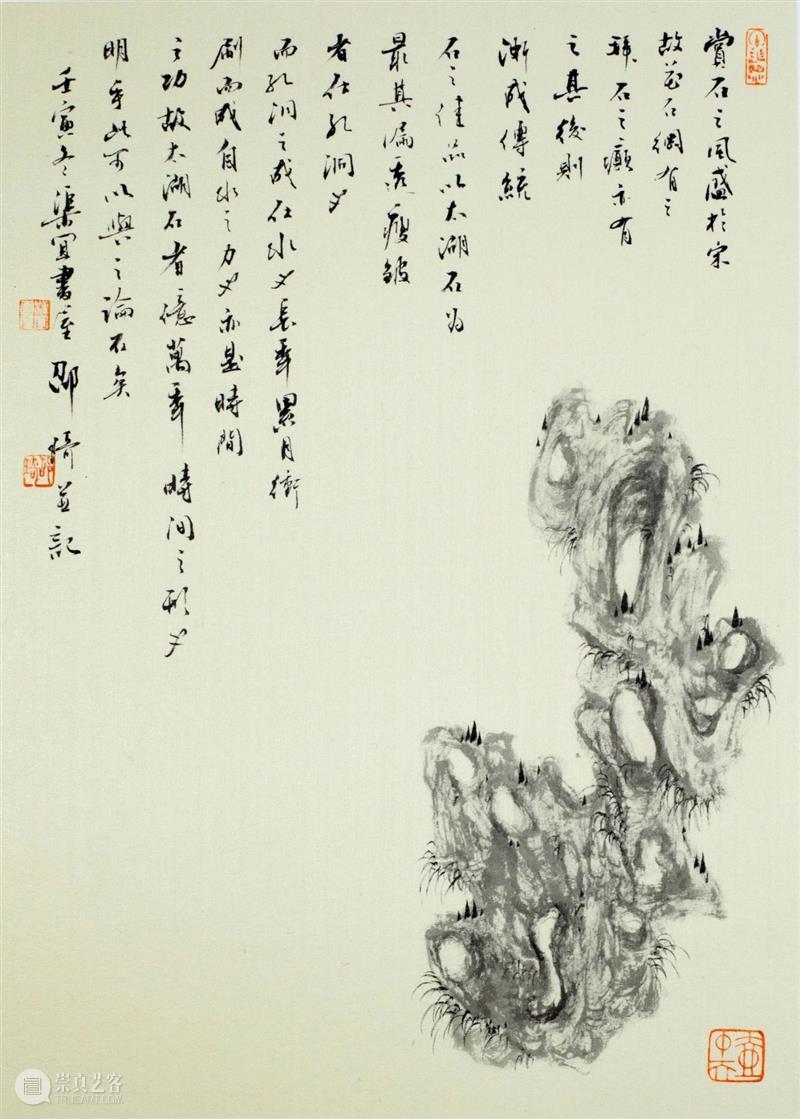 賞石之風盛於宋
故花石綱有之
拜石之癲亦有
之其後則
漸成傳統
石之佳品以太湖石为
最其漏透瘦皱
者在孔洞也
而孔洞之成在水也長年累月衝
刷而成自水之力也亦是時間
之功故太湖石者億萬年時间之形也
明乎此可以與之論石矣
壬寅冬渠宜書室邵琦並記
崇真艺客
WWW.TRUEART.COM